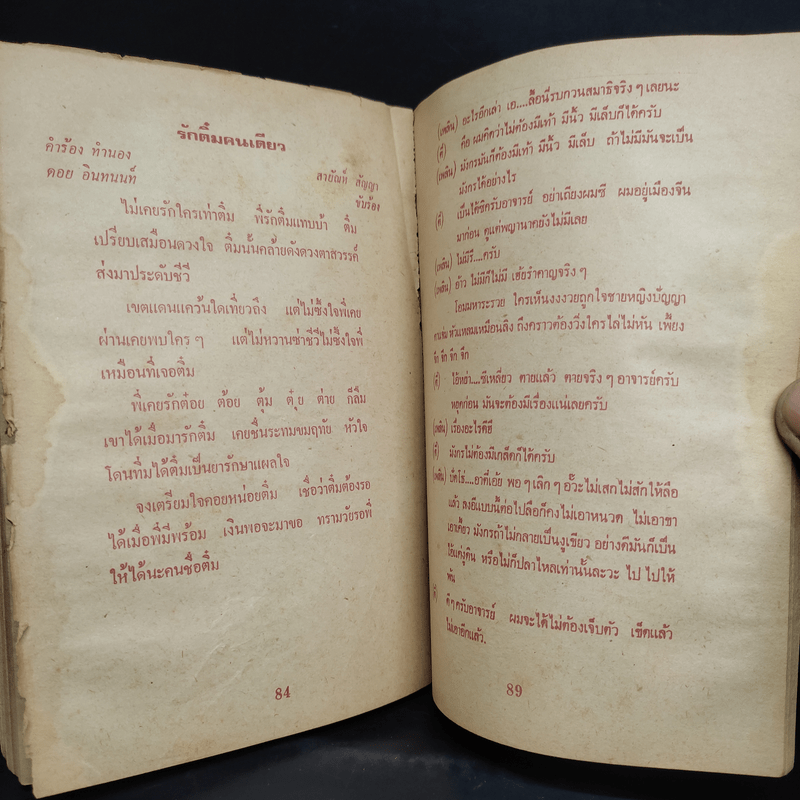 รักติ๋มคนเดียว
คำร้อง ทำนอง
ดอย อินทนนท์
สายัณห์ สัญญา
ขับร้อง
ไม่เคยรักใครเท่าติ๋ม พี่รักติ๋มแทบบ้า ติ๋ม
เปรียบเสมือนดวงใจ ติ๋มนั้นคล้ายดังดวงตาสวรรค์
ส่งมาประดับชีวี
เขตแดนแคว้นใดเที่ยวถึง แต่ไม่ซึ้งใจพี่เคย
ผ่านเคยพบใคร ๆ แต่ไม่หวานซ่าชีวีไม่ซึ้งใจพี่
เหมือนที่เจอติ๋ม
พี่เคยรักต๋อย ต้อย ตุ้ม ตุ๋ย ต่าย ก็ลืม
เขาได้เมื่อมารักติ๋ม เคยชื่นระทมขมฤทัย หัวใจ
โดนทิ่มได้ติ๋มเป็นยารักษาแผลใจ
จงเตรียมใจคอยหน่อยติ๋ม เชื่อว่าติ๋มต้องรอ
ได้เมื่อพี่มีพร้อม เงินพอจะมาขอ ทรามวัยรอพี่
ให้ได้นะคนชื่อติ๋ม
84
(เพลิน) อะไรอีกเล่า เอ....ลื้อนี่รบกวนสมาธิจริง ๆ เลยนะ
(ดี๋) คือ ผมคิดว่าไม่ต้องมีเท้า มีนิ้ว มีเล็บก็ได้ครับ
(เพลิน) มังกรมันก็ต้องมีเท้า มีนิ้ว มีเล็บ ถ้าไม่มีมันจะเป็น
มังกรได้อย่างไร
(ดี๋) เป็นได้ซิครับอาจารย์ อย่าเถียงผมซี ผมอยู่เมืองจีน
มาก่อน ดูแต่พญานาคยังไม่มีเลย
(เพลิน) ไม่มีรึ....ครับ
(เพลิน) อ้าว ไม่มีก็ไม่มี เฮ้อรำคาญจริง ๆ
โอมมหาระรวย ใครเห็นงงงวยถูกใจชายหญิงปัญญา
หัวแหลมเหมือนลิง ถึงคราวต้องวิ่งใครไล่ไม่ทัน เพี้ยง
จึ๊ก จึ๊ก จึ๊ก จึ๊ก
(ดี๋) ไอ้หย่า....ซี้เหลี่ยว ตายแล้ว ตายจริง ๆ อาจารย์ครับ
หยุดก่อน มันจะต้องมีเรื่องแน่เลยครับ
(เพลิน) เรื่องอะไรดีฮึ
(ดี๋) มังกรไม่ต้องมีเกล็ดก็ได้ครับ
(เพลิน) บ๊ะโธ่....อาตี๋เอ้ย พอ ๆ เลิก ๆ อั๊วะไม่เสกไม่สักให้ลือ
แล้ว ลงอีแบบนี้ต่อไปลื้อก็คงไม่เอาหนวด ไม่เอาขา
เอาเคี้ยว มังกรถ้าไม่กลายเป็นงูเขียว อย่างดีมันก็เป็น
ไอ้แค่งูดิน หรือไม่ก็ปลาไหลเท่านั้นละวะ ไป ไปให้
พ้น
ดี๋ ดี ๆ ครับอาจารย์ ผมจะได้ไม่ต้องเจ็บตัว เข็ดแล้ว
ไม่เอาอีกแล้ว.
89